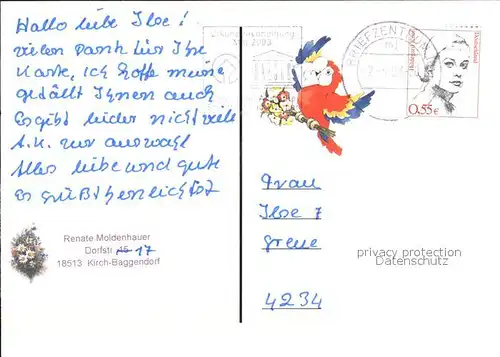 Hallo liebe Ilse!
vielen Dank für Ihre
Karte, Ich hoffe meine
gefällt Ihnen auch
Es gibt leider nicht viele
A.K. zur auswahl
Alles liebe und gute
Es grüßt herzlichst
Renate Moldenhauer
Dorfstr. 45 17
18513 Kirch-Baggendorf
BRIEFZENTRUM
Deutschland
0,55 €
Frau
Ilse
Greve
4234
privacy protection
Datenschutz